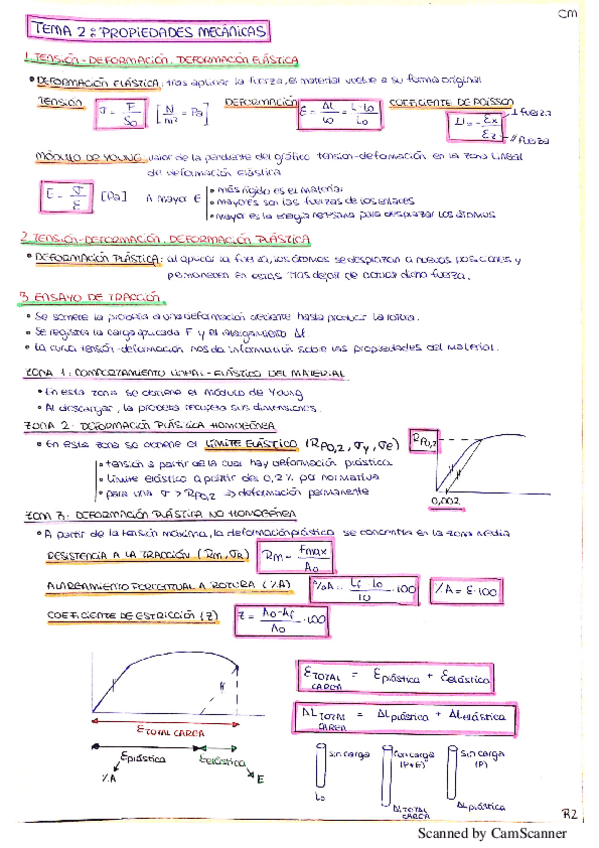 CM
TEMA 2: PROPIEDADES MECÁNICAS
1. TENSIÓN-DEFORMACIÓN. DEFORMACIÓN ELÁSTICA
• DEFORMACIÓN ELÁSTICA: tras aplicar la fuerza, el material vuelve a su forma original
TENSIÓN σ = F/S₀ [N/m² = Pa] DEFORMACIÓN ε = ΔL/L₀ = L-L₀/L₀ COEFICIENTE DE POISSON ν = -εx/εz ⊥ fuerza // fuerza
MÓDULO DE YOUNG: valor de la pendiente del gráfico tensión-deformación en la zona lineal
de deformación elástica
E = σ/ε [Pa] A mayor E • más rígido es el material
• mayores son las fuerzas de los enlaces
• mayor es la energía necesaria para desplazar los átomos
2. TENSIÓN-DEFORMACIÓN. DEFORMACIÓN PLÁSTICA
• DEFORMACIÓN PLÁSTICA: al aplicar la fuerza, los átomos se desplazan a nuevas posiciones y
permanecen en estas tras dejar de actuar dicha fuerza.
3. ENSAYO DE TRACCIÓN
• Se somete la probeta a una deformación creciente hasta producir la rotura.
• Se registra la carga aplicada F y el alargamiento Δl.
• La curva tensión-deformación nos da información sobre las propiedades del material.
ZONA 1: COMPORTAMIENTO LINEAL-ELÁSTICO DEL MATERIAL
• En esta zona se obtiene el módulo de Young
• Al descargar, la probeta recupera sus dimensiones.
ZONA 2: DEFORMACIÓN PLÁSTICA HOMOGÉNEA
• En esta zona se obtiene el LÍMITE ELÁSTICO (RP0,2, σy, σe)
RP0,2
• tensión a partir de la cual hay deformación plástica
• límite elástico a partir del 0,2% por normativa
• para una σ > RP0,2 ⇒ deformación permanente
0,002
ZONA 3: DEFORMACIÓN PLÁSTICA NO HOMOGÉNEA
• A partir de la tensión máxima, la deformación plástica se concentra en la zona media
RESISTENCIA A LA TRACCIÓN (Rm, σR) Rm = Fmax/A₀
ALARGAMIENTO PORCENTUAL A ROTURA (%A) %A = Lf-L₀/L₀ · 100 %A = ε·100
COEFICIENTE DE ESTRICCIÓN (Z) Z = A₀-Af/A₀ · 100
ε TOTAL CARGA = ε plástica + ε elástica
ΔL TOTAL CARGA = ΔL plástica + ΔL elástica
ε TOTAL CARGA
ε plástica ε elástica
%A E
sin carga con carga (P+E) sin carga (P)
L₀ ΔL TOTAL CARGA ΔL plástica
R2
Scanned by CamScanner